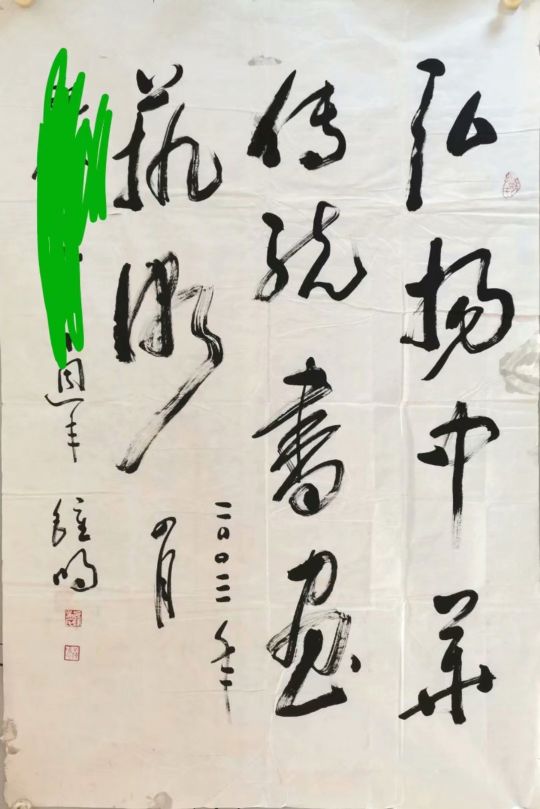 弘扬中华
传统书画
艺术
二00二年
四月
周年
钟鸣